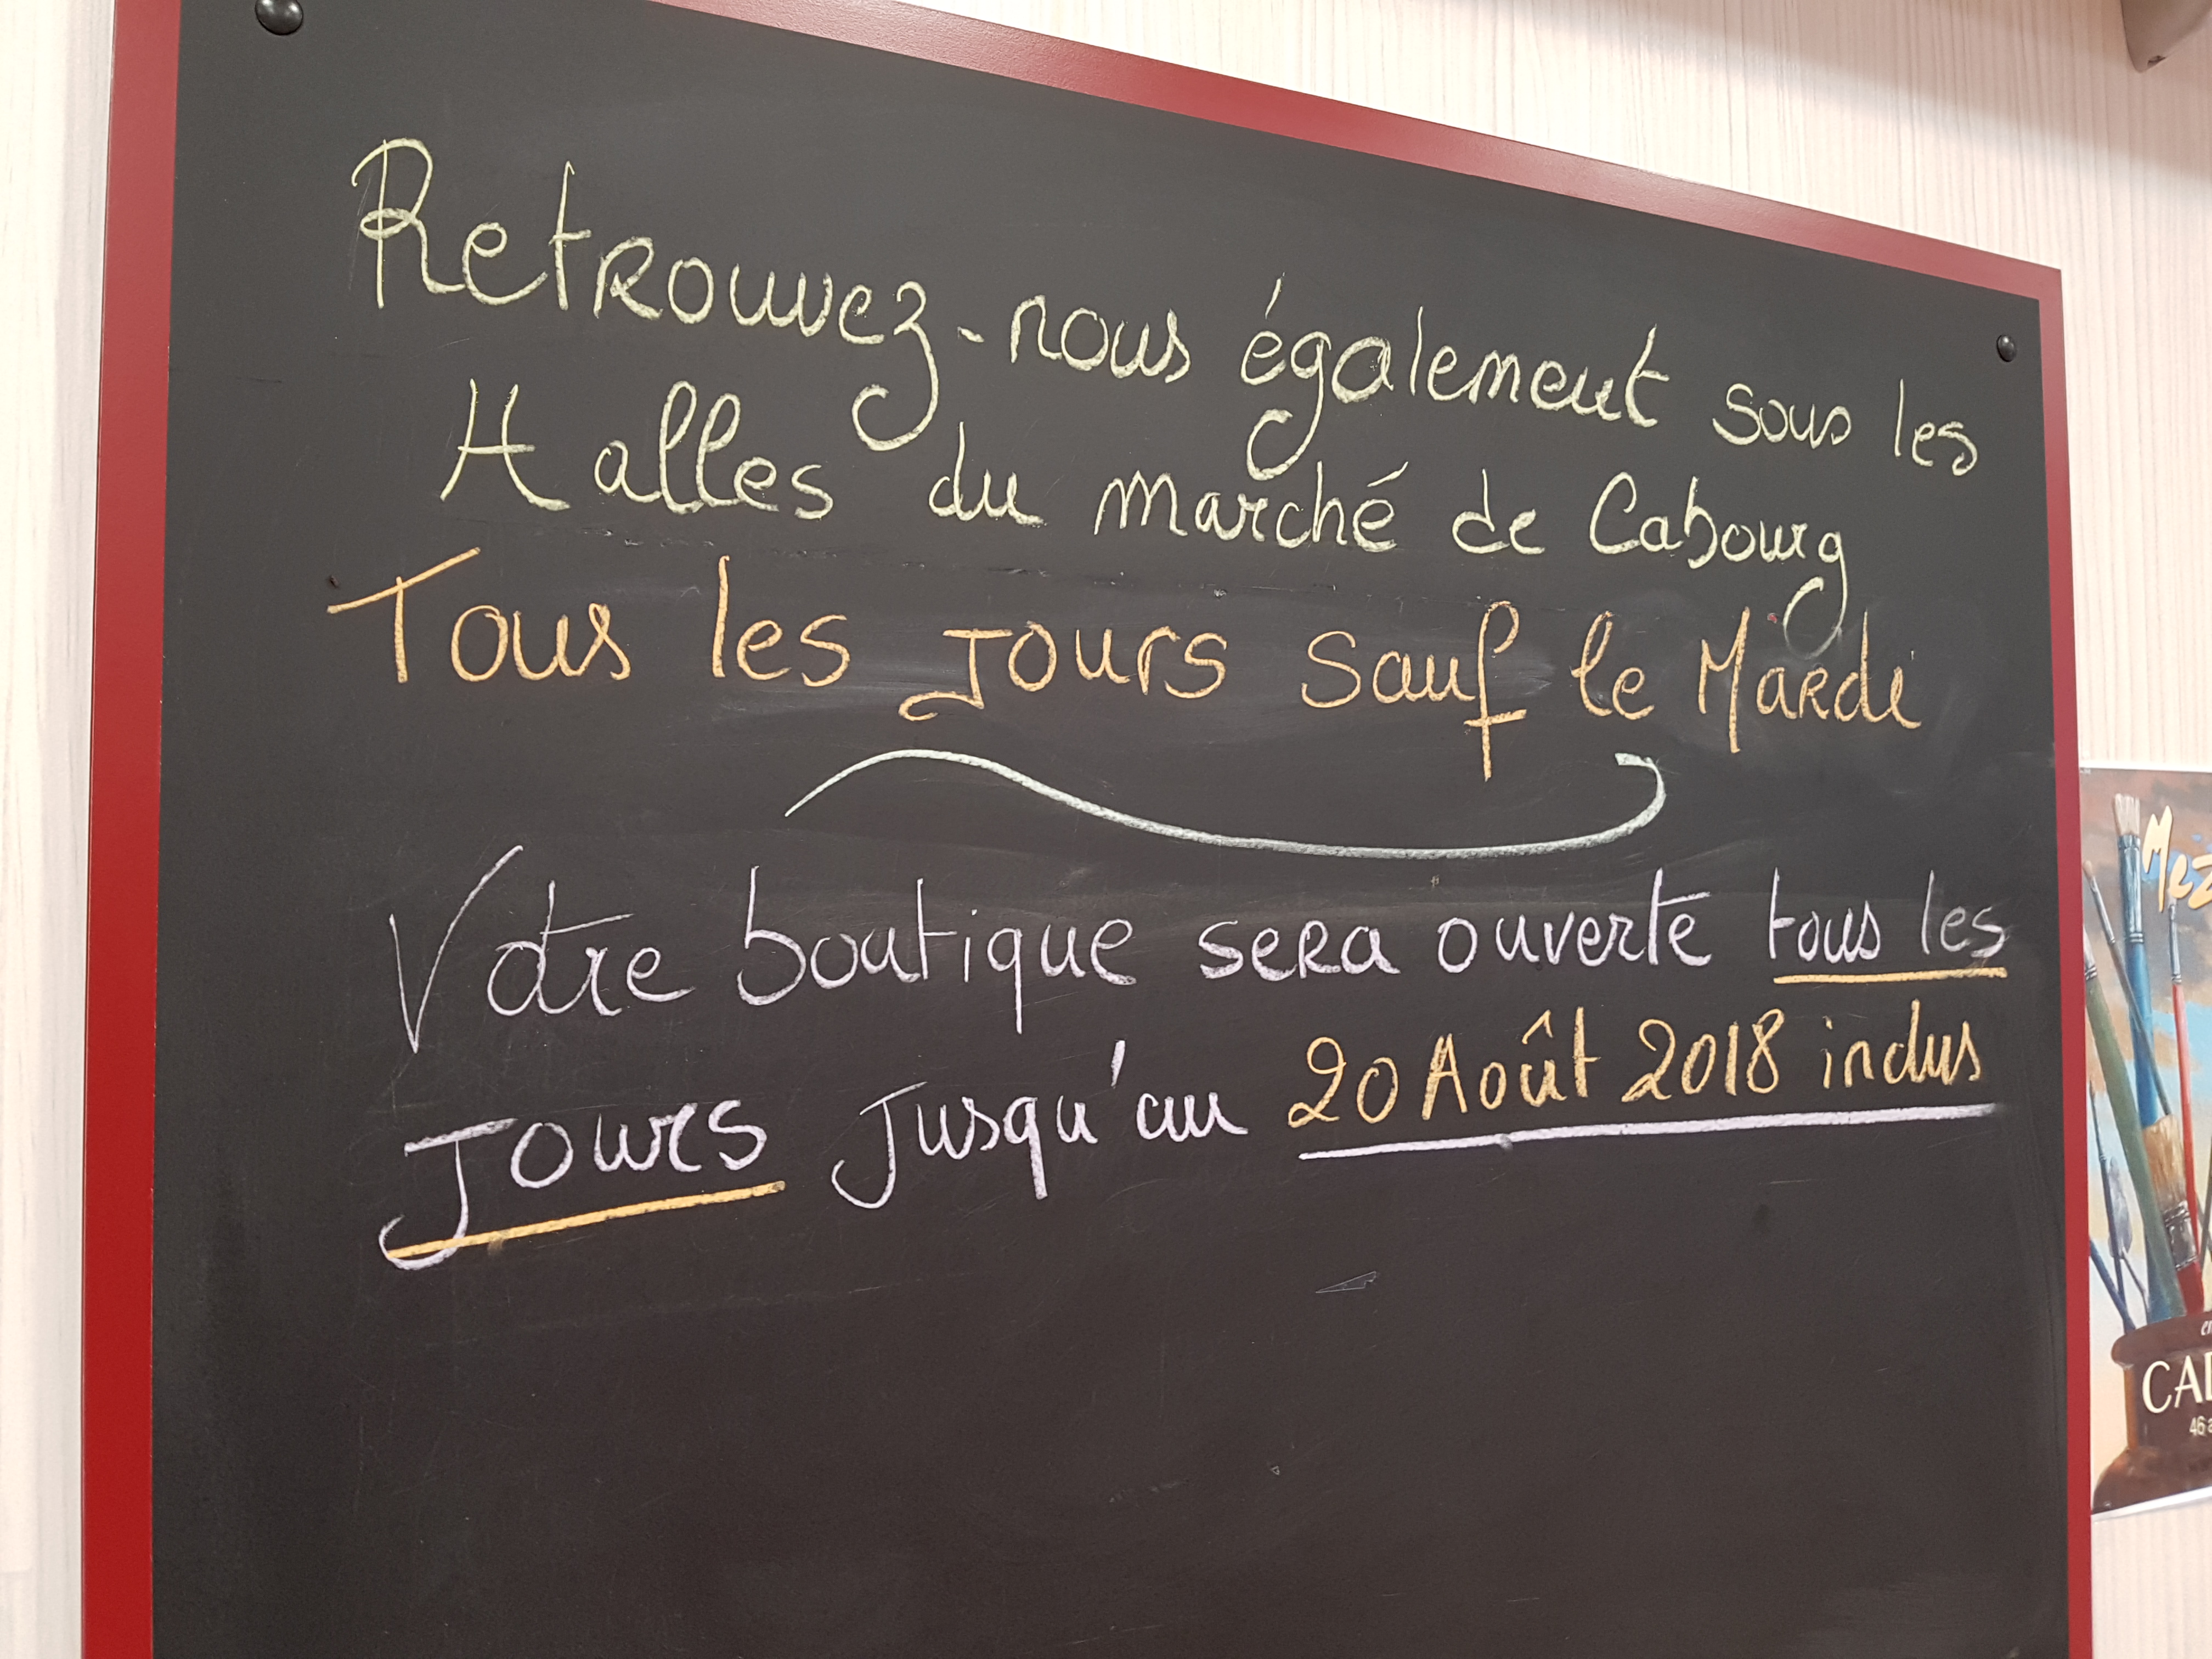 Retrouvez-nous également sous les
Halles du marché de Cabourg
Tous les jours sauf le Mardi
Votre boutique sera ouverte tous les
jours jusqu'au 20 Août 2018 inclus
Mez
CAD
46